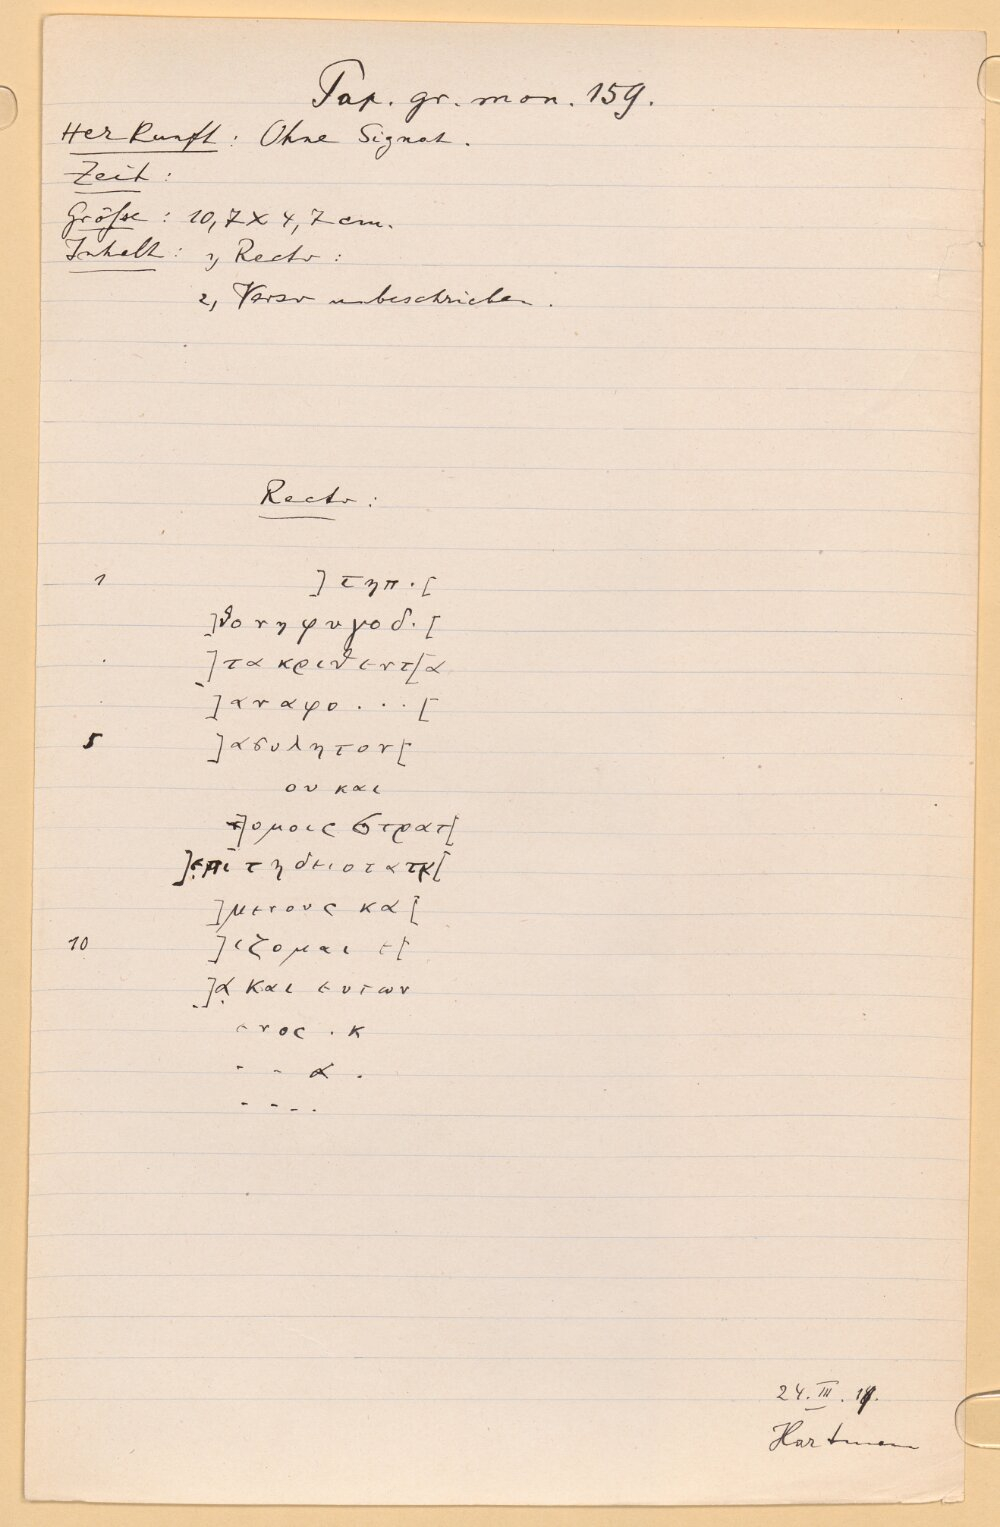 Pap. gr. mon. 159.
Herkunft: Ohne Signat.
Zeit:
Größe: 10,7 x 4,7 cm.
Inhalt: 1, Recto:
2, Verso unbeschrieben.
Recto:
1 ] τηπ . [
]θονηφυγοδ . [
. ] τα κριθεντ[α
. ] αναφο . . . [
5 ] ασυλητον[
ου και
]ομοις στρατ[
]επιτηδειοτατ[
]μενους κα[
10 ]ιζομαι ε[
]α και ευτων
ενος . κ
- - α .
- - - .
24. III.
Hartmann